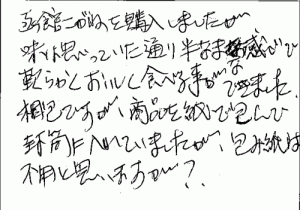 函館こがねを購入しましたが
味は思っていた通り半なま感がで
軟らかくおいしく食べる事ができました。
相包ですが、商品を紙で包んで
封筒に入れていましたが、包み紙は
不用と思いますが?